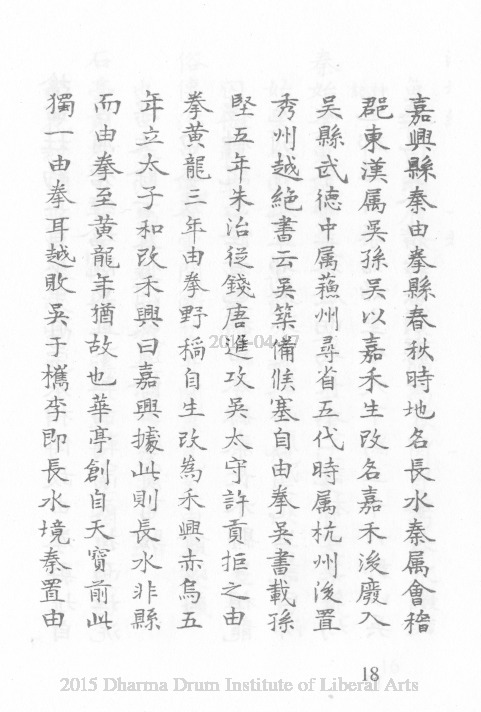 嘉興縣秦由拳縣春秋時地名長水秦属會稽
郡東漢属吳孫吳以嘉禾生改名嘉禾後廢入
吳縣武德中属蘓州尋省五代時属杭州後置
秀州越絶書云吳築備候塞自由拳吳書載孫
堅五年朱治從錢唐進攻吳太守許貢拒之由
拳黄龍三年由拳野稲自生改為禾興赤烏五
年立太子和改禾興曰嘉興據此則長水非縣
而由拳至黄龍年猶故也華亭創自天寳前此
獨一由拳耳越敗吳于檇李即長水境秦置由
18
2015 Dharma Drum Institute of Liberal Arts